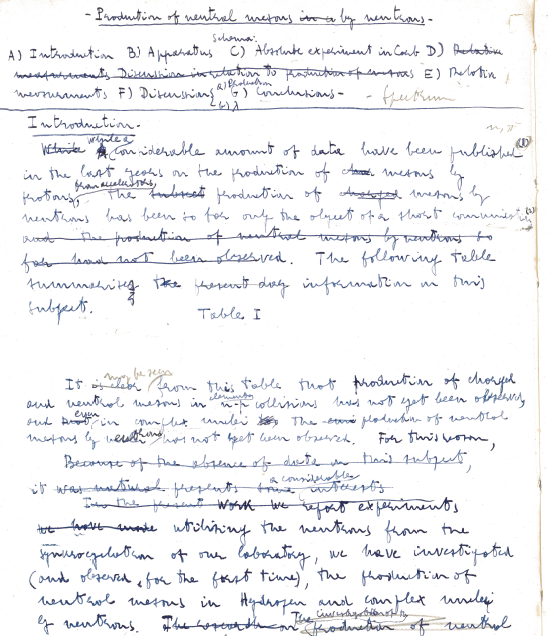 - Production of neutral mesons in a by neutrons. -
schema:
A) Introduction B) Apparatus C) Absolute experiment in C at D) Relative
measurements Discussion in relation to production of mesons E) Relative
measurements F) Discussion { a) Production b) λ G) Conclusions - - Spectrum
Introduction. -
n, π
While a While a considerable amount of data have been published (1)
in the last years on the production of mesons by
protons, from accelerators, the subject production of charged mesons by
neutrons has been so far only the object of a short communication (2)
and the production of neutral mesons by neutrons so
far had not been observed. The following table
summarises the present day information on this
subject.
Table I
may be seen
It is clear from this table that production of charged
elementary
and neutral mesons in n-p collisions has not yet been observed,
and even in complex nuclei the production of neutral
mesons by neutrons has not yet been observed. For this reason,
Because of the absence of data on this subject,
a considerable
it was natural presents some interests
In the present work we report experiments
we have made utilizing the neutrons from the
synchrocyclotron of our laboratory, we have investigated
(and observed, for the first time), the production of
neutral mesons in Hydrogen and complex nuclei
The investigation of the
by neutrons. The research on production of neutral